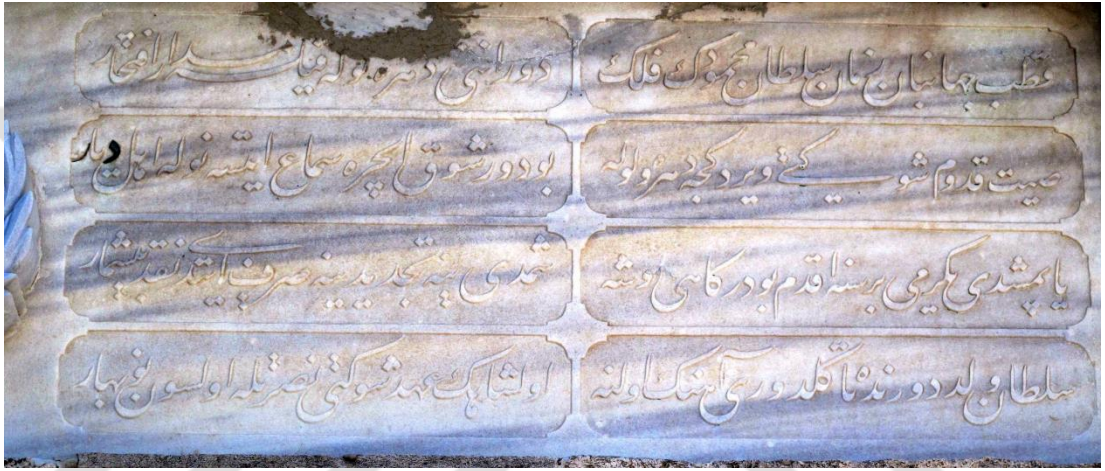 قطب جهانبان زمان سلطان محمودك فلك
دورانتى دهره بويله قيلدى افتخار
صيت قدوم شوكتى ويردكجه دهره ولوله
بو دور شوق ايچره سماع ايتسه نوله اهل ديار
ياپمشدى مكرمى برسنه اقدم بو دركاهى او شه
شمدى ينه تجديدينه صرف ايتدى نقد بيشمار
سلطان ولد دورنده تا كلدورى آهنك اولنه
اول شاهك عهد شوكتى نصرتله اولسون نوبهار